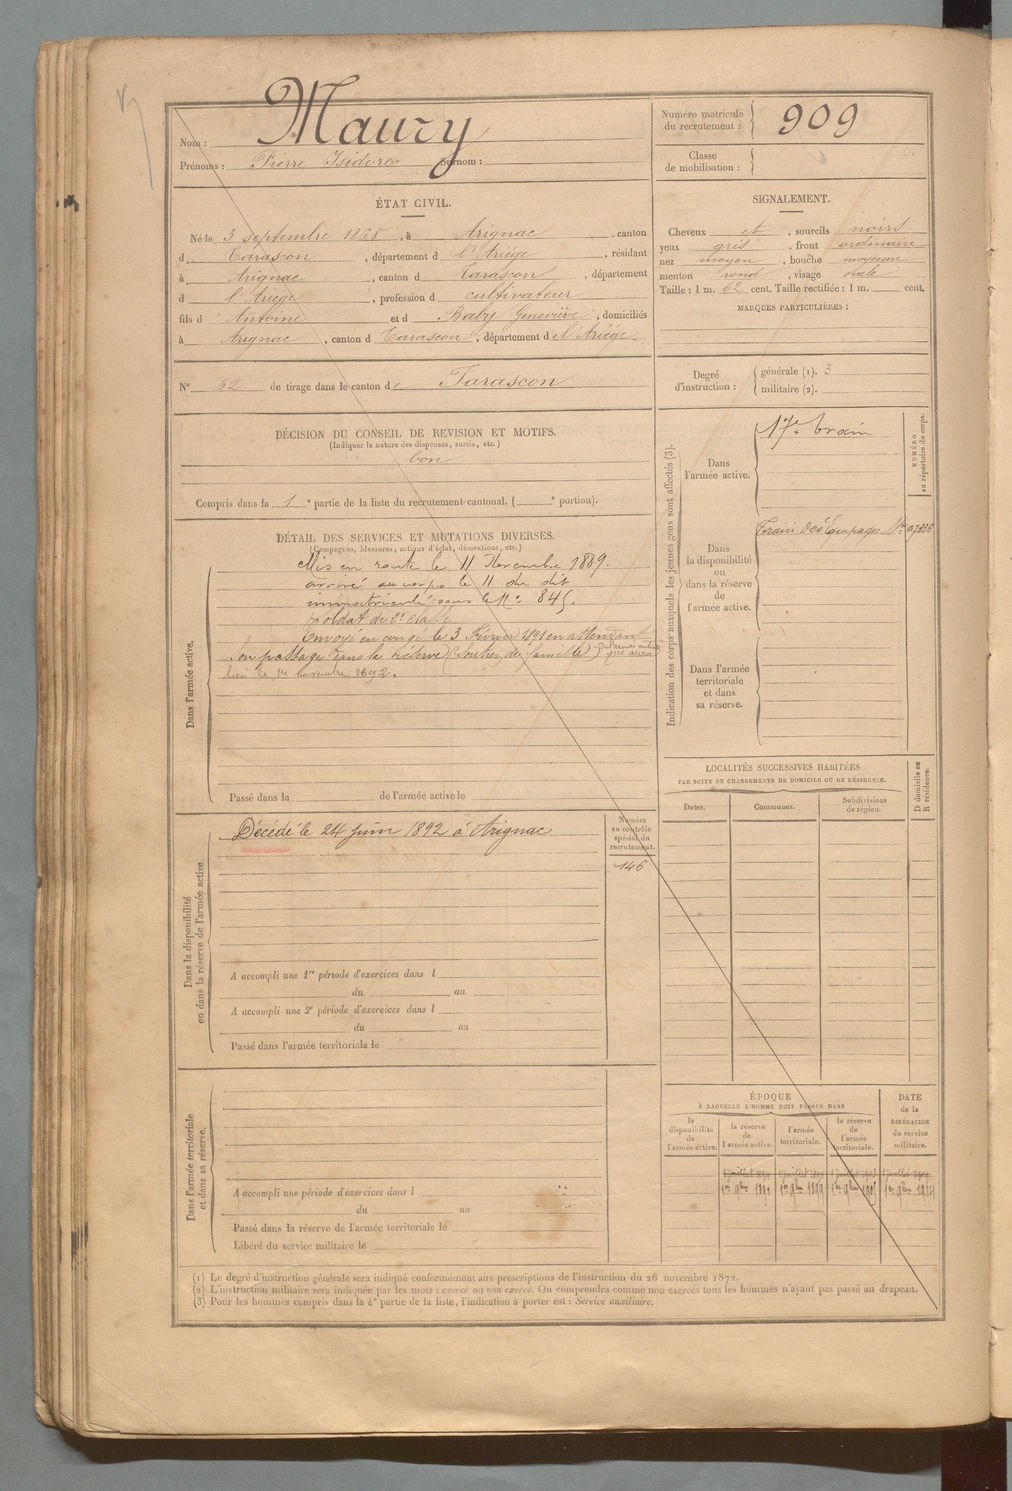 Nom : Maury
Prénoms : Pierre Isidore Surnom :
Numéro matricule du recrutement : 909
Classe de mobilisation :
ÉTAT CIVIL.
Né le 3 septembre 1868, à Arignac, canton
d Tarascon, département d l'Ariége, résidant
à Arignac, canton d Tarascon, département
d l'Ariége, profession d cultivateur
fils d Antoine et d Baby Geneviève, domiciliés
à Arignac, canton d Tarascon, département d el'Ariége.
SIGNALEMENT.
Cheveux et, sourcils noirs
yeux gris, front ordinaire
nez moyen, bouche moyenne
menton rond, visage ovale
Taille : 1 m. 62 cent. Taille rectifiée : 1 m. cent.
MARQUES PARTICULIÈRES :
N° 62 de tirage dans le canton de Tarascon
Degré d'instruction : générale (1). 3
militaire (2).
DÉCISION DU CONSEIL DE REVISION ET MOTIFS.
(Indiquer la nature des dispenses, sursis, etc.)
bon
Compris dans la 1e partie de la liste du recrutement cantonal. ( e portion).
DÉTAIL DES SERVICES ET MUTATIONS DIVERSES.
(Campagnes, blessures, actions d'éclat, décorations, etc.)
Dans l'armée active.
Mis en route le 11 Novembre 1889.
arrivé au corps le 11 du dit
immatriculé sous le N° 845.
soldat de 2e classe
Envoyé en congé le 3 Février 1891 en attendant
son passage dans la réserve (Soutien de famille) qui aura
lieu le 1er novembre 1892.
Passé dans la de l'armée active le
Indication des corps auxquels les jeunes gens sont affectés (3).
NUMÉRO au répertoire du corps.
Dans l'armée active.
17e train
Dans la disponibilité ou dans la réserve de l'armée active.
Train des Equipages
Dans l'armée territoriale et dans sa réserve.
LOCALITÉS SUCCESSIVES HABITÉES
PAR SUITE DE CHANGEMENTS DE DOMICILE OU DE RÉSIDENCE.
D domicile ou R résidence.
Dates. Communes. Subdivisions de région.
Dans la disponibilité ou dans la réserve de l'armée active
Décédé le 24 juin 1892 à Arignac
Numéro au contrôle spécial du recrutement.
146
A accompli une 1re période d'exercices dans l
du au
A accompli une 2e période d'exercices dans l
du au
Passé dans l'armée territoriale le
Dans l'armée territoriale et dans sa réserve.
A accompli une période d'exercices dans l
du au
Passé dans la réserve de l'armée territoriale le
Libéré du service militaire le
ÉPOQUE
À LAQUELLE L'HOMME DOIT PASSER DANS
DATE de la LIBÉRATION du service militaire.
la disponibilité de l'armée active.
la réserve de l'armée active.
l'armée territoriale.
la réserve de l'armée territoriale.
(1) Le degré d'instruction générale sera indiqué conformément aux prescriptions de l'instruction du 26 novembre 1872.
(2) L'instruction militaire sera indiquée par les mots : exercé ou non exercé. On comprendra comme non exercés tous les hommes n'ayant pas passé au drapeau.
(3) Pour les hommes compris dans la 4e partie de la liste, l'indication à porter est : Service auxiliaire.